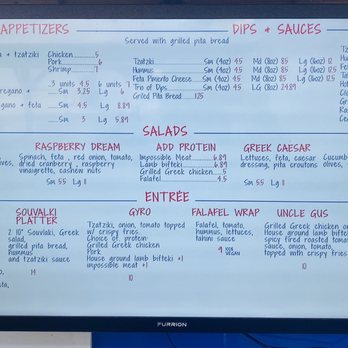 APPETIZERS
& tzatziki Chicken 5
Pork 6
Shrimp 7
3 units 4.5 6 units 7
oregano + Sm 3.25 Lg 6
oregano + feta Sm 4.5 Lg 8.89
Sm 3 Lg 5.89
DIPS & SAUCES
Served with grilled pita bread
Tzatziki Sm (4oz) 4.5 Md (8oz) 8.5 Lg (16oz) 12
Hummus Sm (4oz) 4.5 Md (8oz) 8.5 Lg (16oz) 12
Feta Pimiento Cheese Sm (4oz) 4.5 Md (8oz) 8.5 Lg (16oz) 12
Trio of Dips Sm (4oz) 4.5 LG (8oz) 24.89
Grilled Pita Bread 1.25
SALADS
RASPBERRY DREAM
Spinach, feta, red onion, tomato,
dried cranberry, raspberry
vinaigrette, cashew nuts
Sm 5.5 Lg 11
ADD PROTEIN
Impossible Meat 6.89
Lamb bifteki 6.89
Grilled Greek chicken 5
Falafel 4.5
GREEK CAESAR
Lettuces, feta, caesar
dressing, pita croutons
Sm 5.5 Lg 11
Cucumb
olives,
ENTRÉE
SOUVALKI
PLATTER
2 10" Souvalki, Greek
salad,
grilled pita bread,
hummus
and tzatziki sauce
14
GYRO
Tzatziki, onion, tomato topped
w/ crispy fries.
Choice of protein:
Grilled Greek chicken
Pork
House ground lamb bifteki +1
impossible meat +1
10
FALAFEL WRAP
Falafel, tomato,
hummus, lettuces,
tahini sauce
9 100% VEGAN
UNCLE GUS
Grilled Greek chicken or
House ground lamb bifteki
spicy fired roasted tomato
sauce, onion, tomato,
topped with crispy fries
10
FURRION